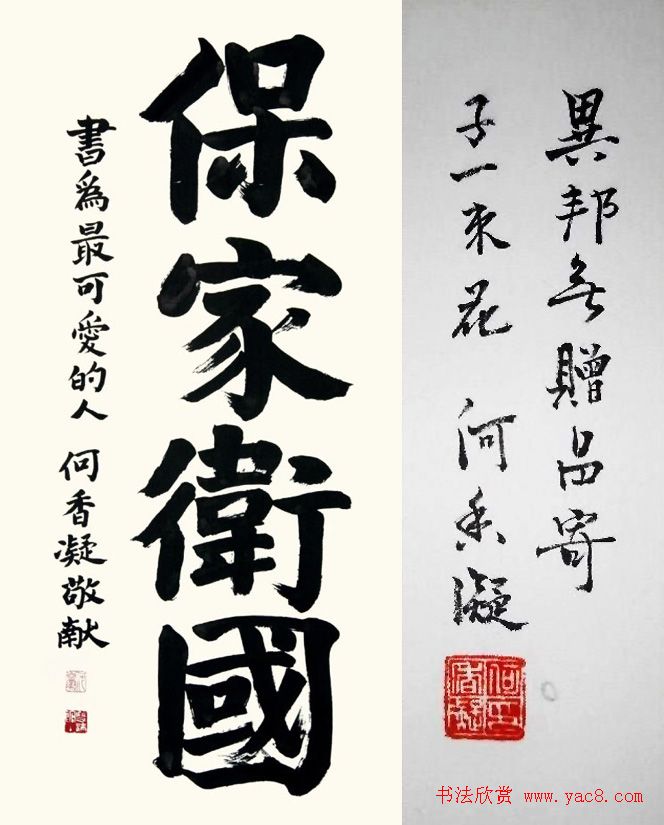 保家衛國
書爲最可愛的人 何香凝敬献
異邦無贈品寄
子一束花 何香凝
何印香凝
书法欣赏 www.yac8.com